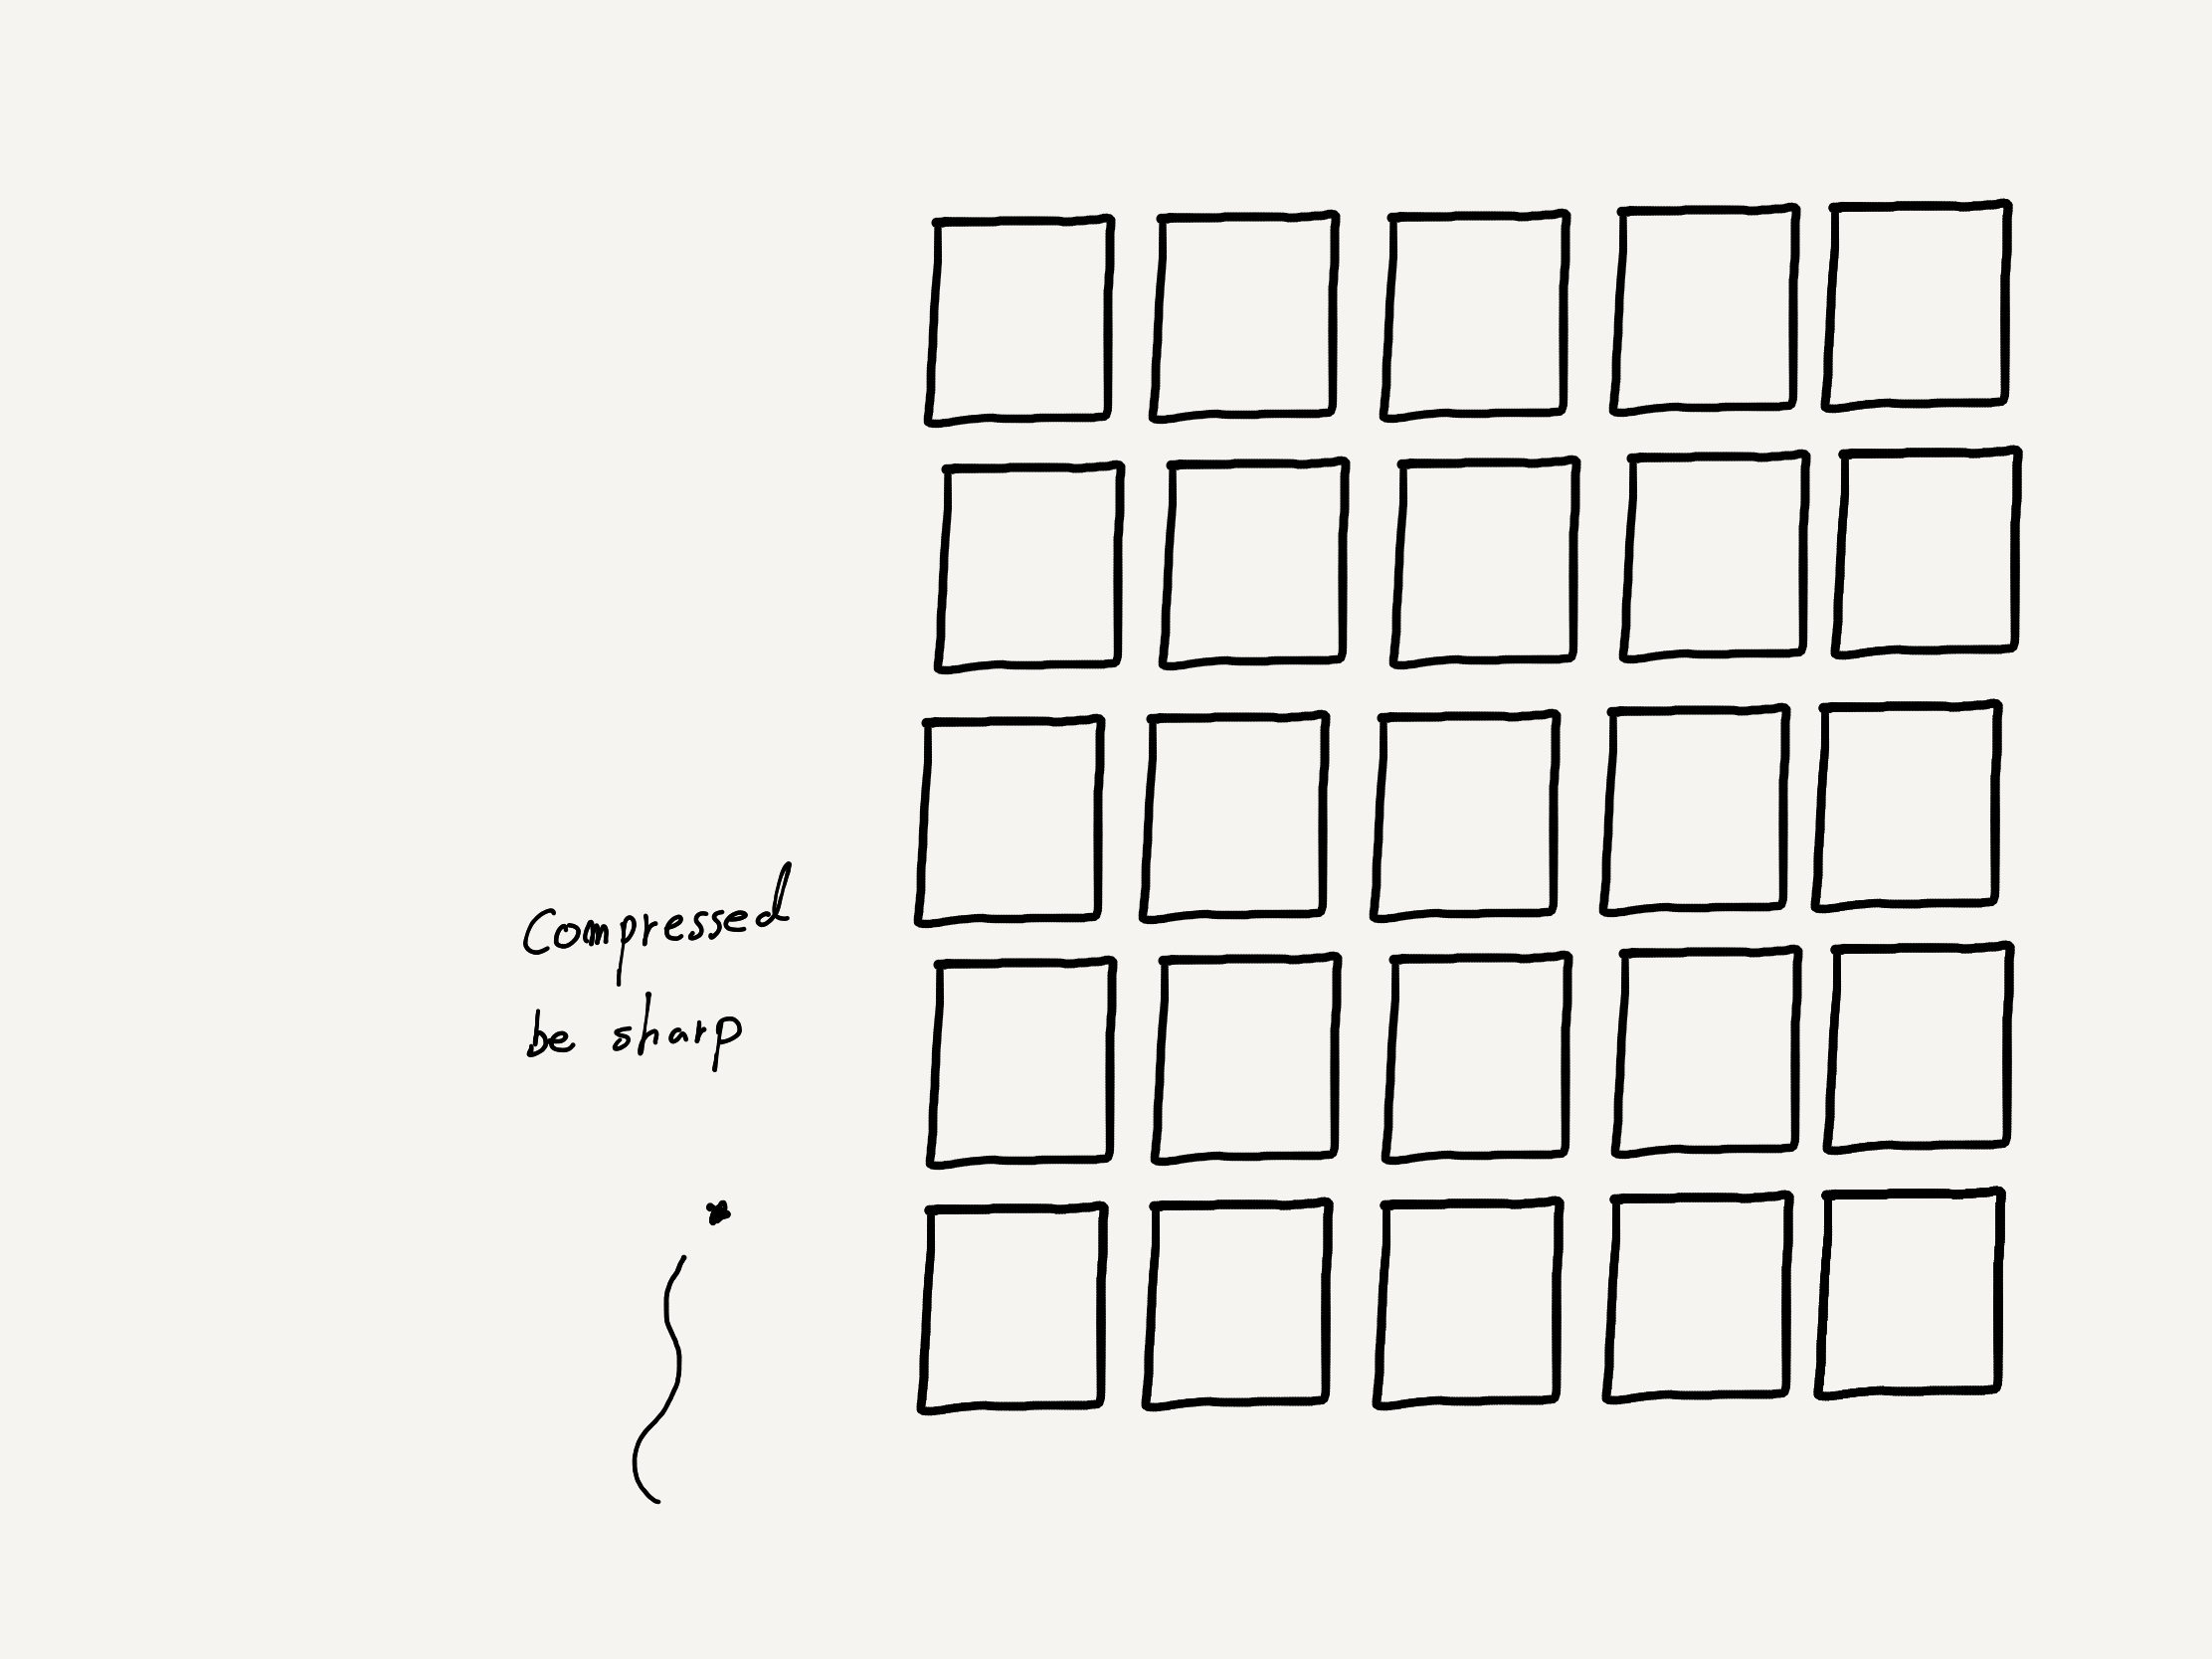 Compressed
be sharp